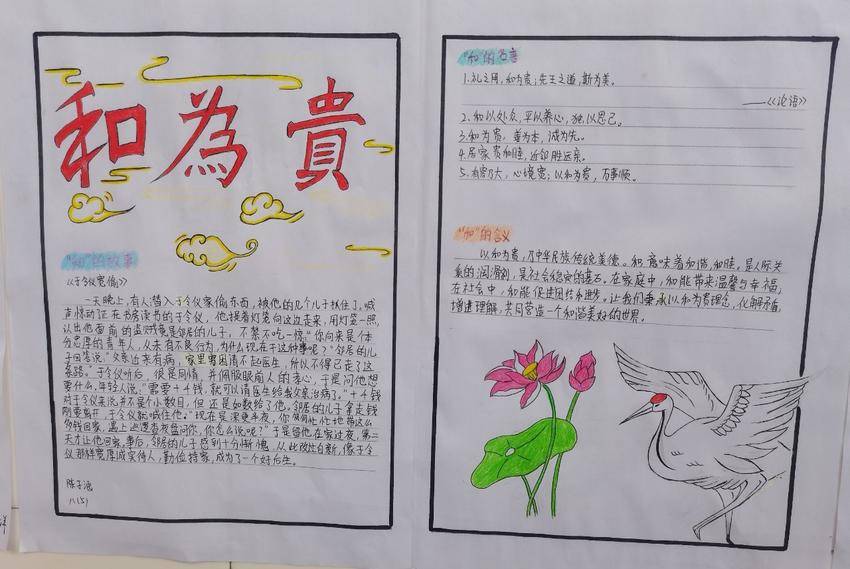 和為貴
“和”的故事
《于令仪宽偷》
一天晚上，有人潜入于令仪家偷东西，被他的几个儿子抓住了。喊
声惊动正在书房读书的于令仪，他提着灯笼向这边走来，用灯笼一照，
认出他面前的盗贼竟是邻居的儿子，不禁不吃一惊：“你向来是个本
分忠厚的青年人，从未有不良行为，为什么现在干这种事呢？”邻居的儿
子回答说：“父亲近来有病，家里穷困请不起医生，所以不得已走了这
条路。”于令仪听后，很是同情，并佩服眼前人的孝心，于是问他想
要什么，年轻人说：“需要十千钱，就可以请医生给我父亲治病了。”十千钱
对于令仪来说并不是个小数目，但还是如数给了他。邻居的儿子拿走钱
刚要离开，于令仪就喊住他：“现在是深更半夜，你匆匆忙忙地带这么
多钱回家，遇上巡逻者夜盘问你，你怎么说呢？”于是留他在家过夜，第二
天才让他回家。事后，邻居的儿子感到十分惭愧，从此改过自新，像于令
仪那样宽厚诚实待人，勤俭持家，成为了一个好后生。
陈子涵
八(5)
“和”的名言
1.礼之用，和为贵；先王之道，斯为美。
——《论语》
2.和以处众，平以养心，独以思己。
3.和为贵，善为本，诚为先。
4.居家贵和睦，近邻胜远亲。
5.有容乃大，心境宽；以和为贵，万事顺。
“和”的含义
以和为贵，乃中华民族传统美德。和，意味着和谐，和睦。是人际关
系的润滑剂，是社会稳定的基石。在家庭中，和能带来温馨与幸福，
在社会中，和能促进团结和进步。让我们秉承以和为贵理念，化解矛盾，
增进理解，共同营造一个和谐美好的世界。